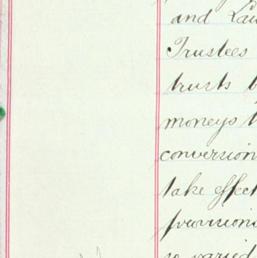 and
Trustees
trusts
moneys
conversion
take effect
provisions
so varied